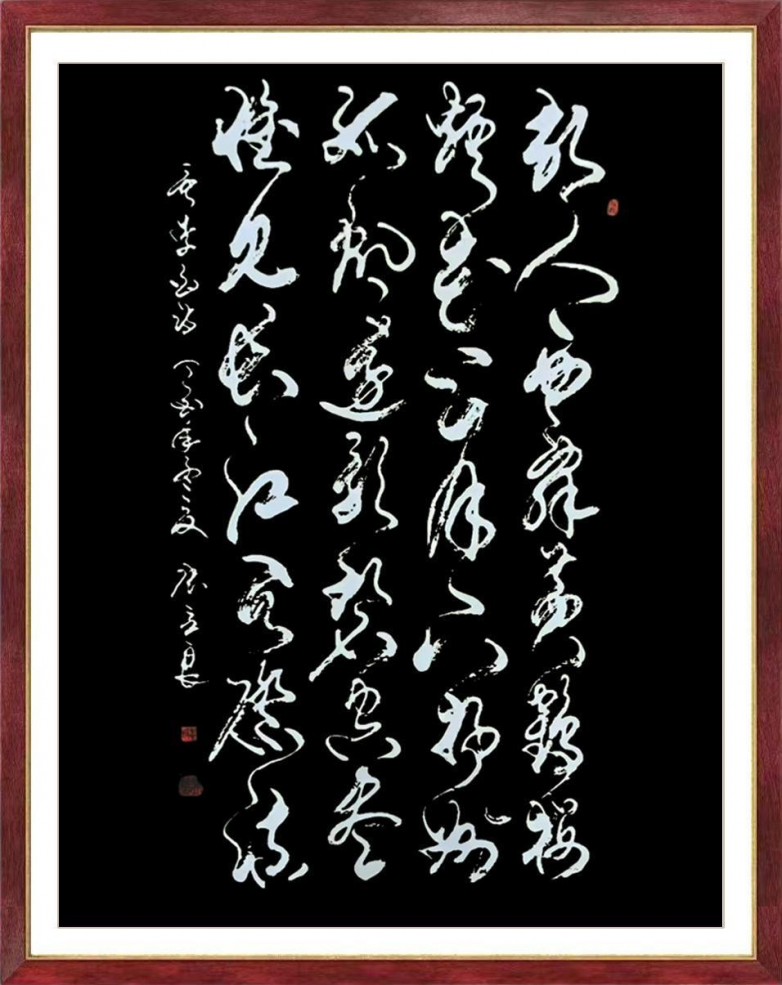 故人西辭黃鶴樓
煙花三月下揚州
孤帆遠影碧空盡
惟見長江天際流
李白詩 丁酉年